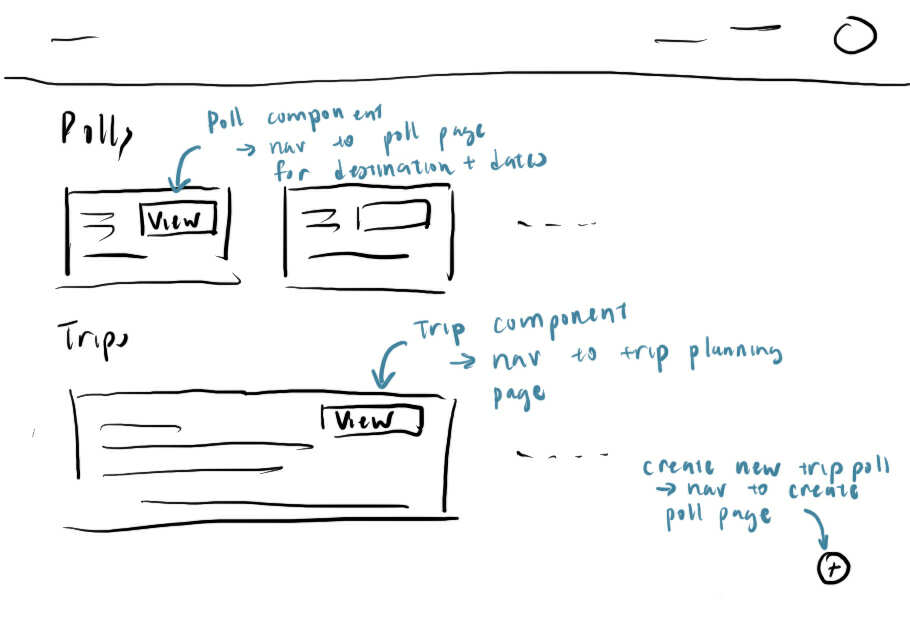 Polls
Poll component
→ nav to poll page
for destination + dates
View
Trips
Trip component
→ nav to trip planning
page
View
create new trip poll
→ nav to create
poll page
+